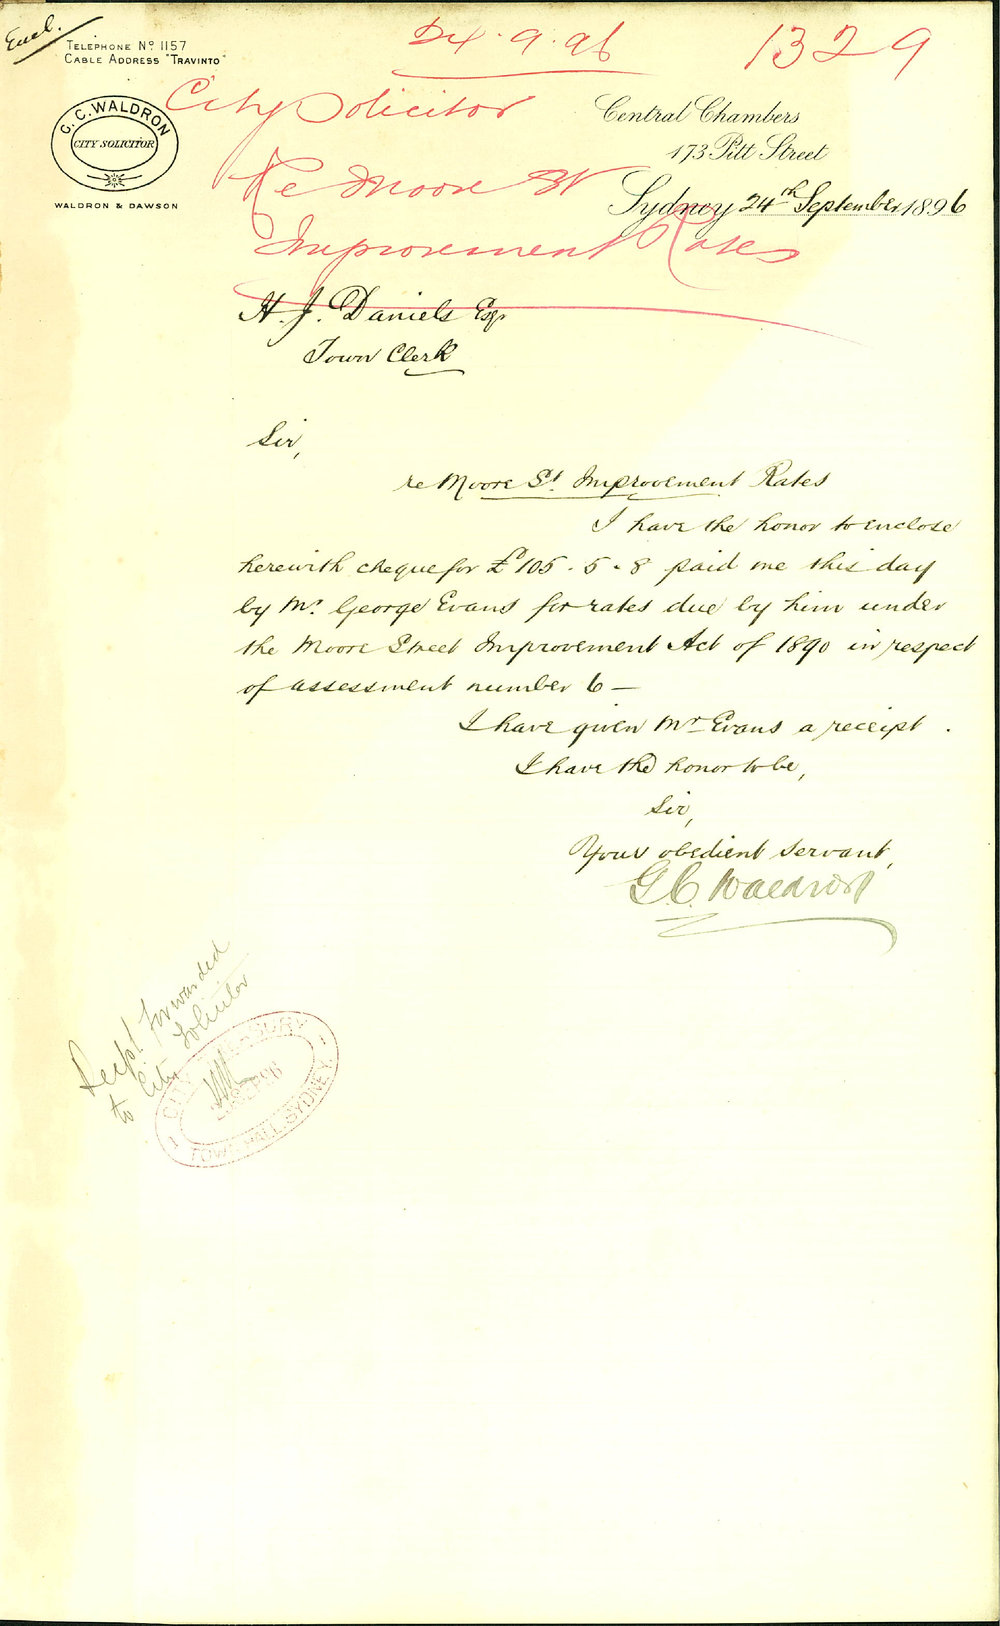 Encl.
TELEPHONE Nº 1157
CABLE ADDRESS "TRAVINTO"
24.9.96
1329
City Solicitor
G. C. WALDRON
CITY SOLICITOR
WALDRON & DAWSON
Central Chambers
173 Pitt Street
Sydney 24th September 1896
Re Moore St
Improvement Rates
H. J. Daniels Esqr
Town Clerk
Sir,
re Moore St. Improvement Rates
I have the honor to enclose
herewith cheque for £105.5.8 paid me this day
by Mr. George Evans for rates due by him under
the Moore Street Improvement Act of 1890 in respect
of assessment number 6 —
I have given Mr Evans a receipt.
I have the honor to be,
Sir,
Your obedient servant,
G. C. Waldron
Recpt forwarded
to City Solicitor
CITY TREASURY
SEP 96
TOWN HALL, SYDNEY